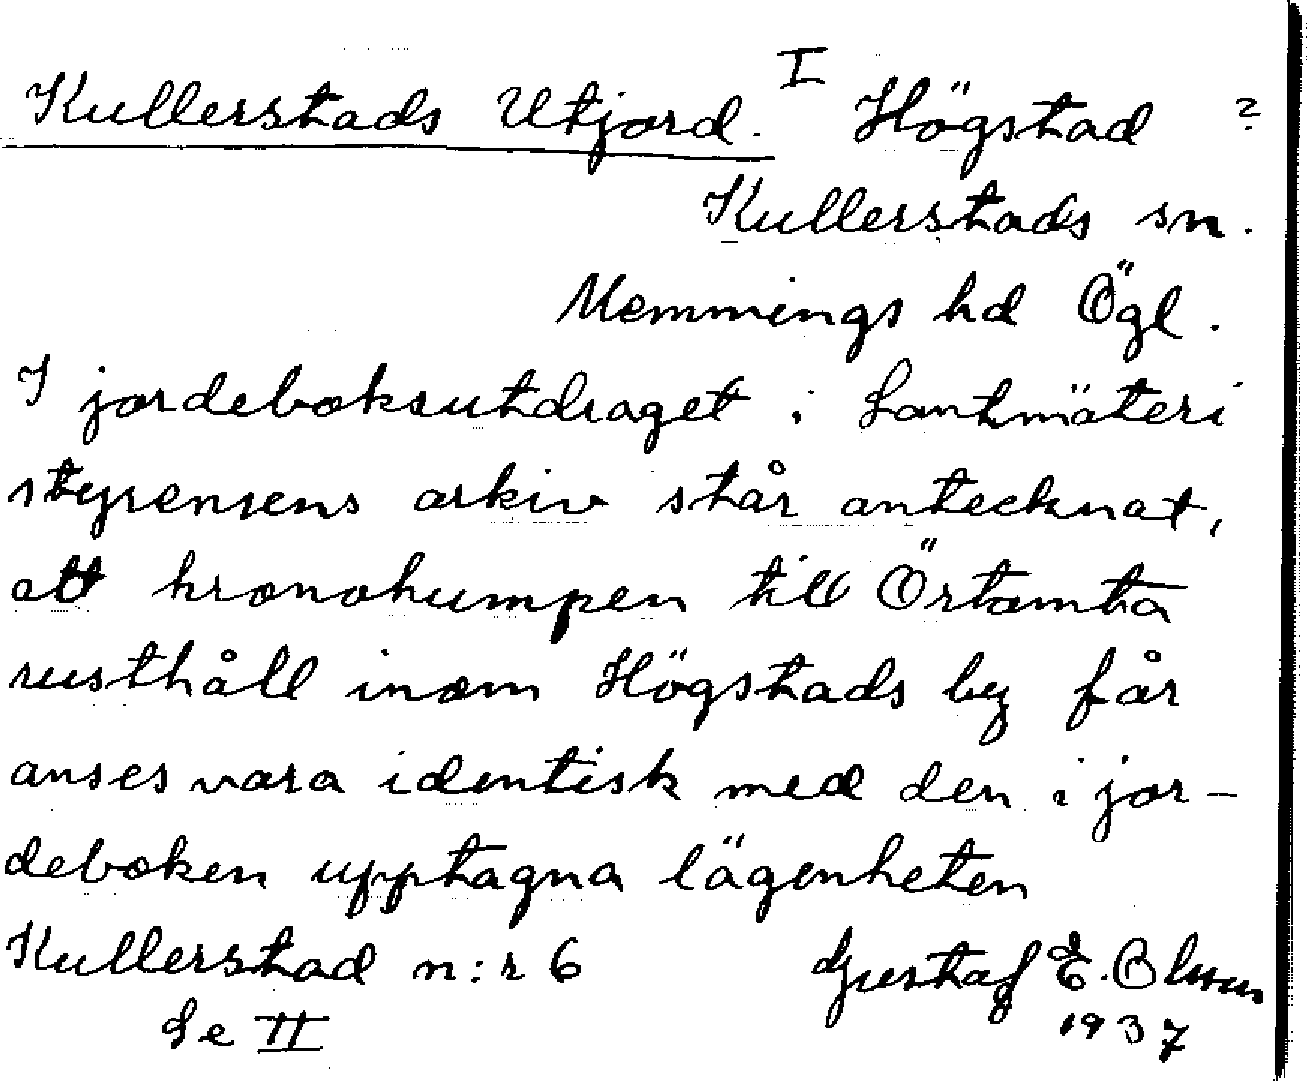 Kullerstads Utjord. I Högstad ?
Kullerstads sn.
Memmings hd Ögl.
I jordeboksutdraget i Lantmäteri
styrensens arkiv står antecknat,
att kronohumpen till Örtomta
rusthåll inom Högstads by får
anses vara identisk med den i jor-
deboken upptagna lägenheten
Kullerstad n:r 6 Gustaf E. Olsson
Se II 1937